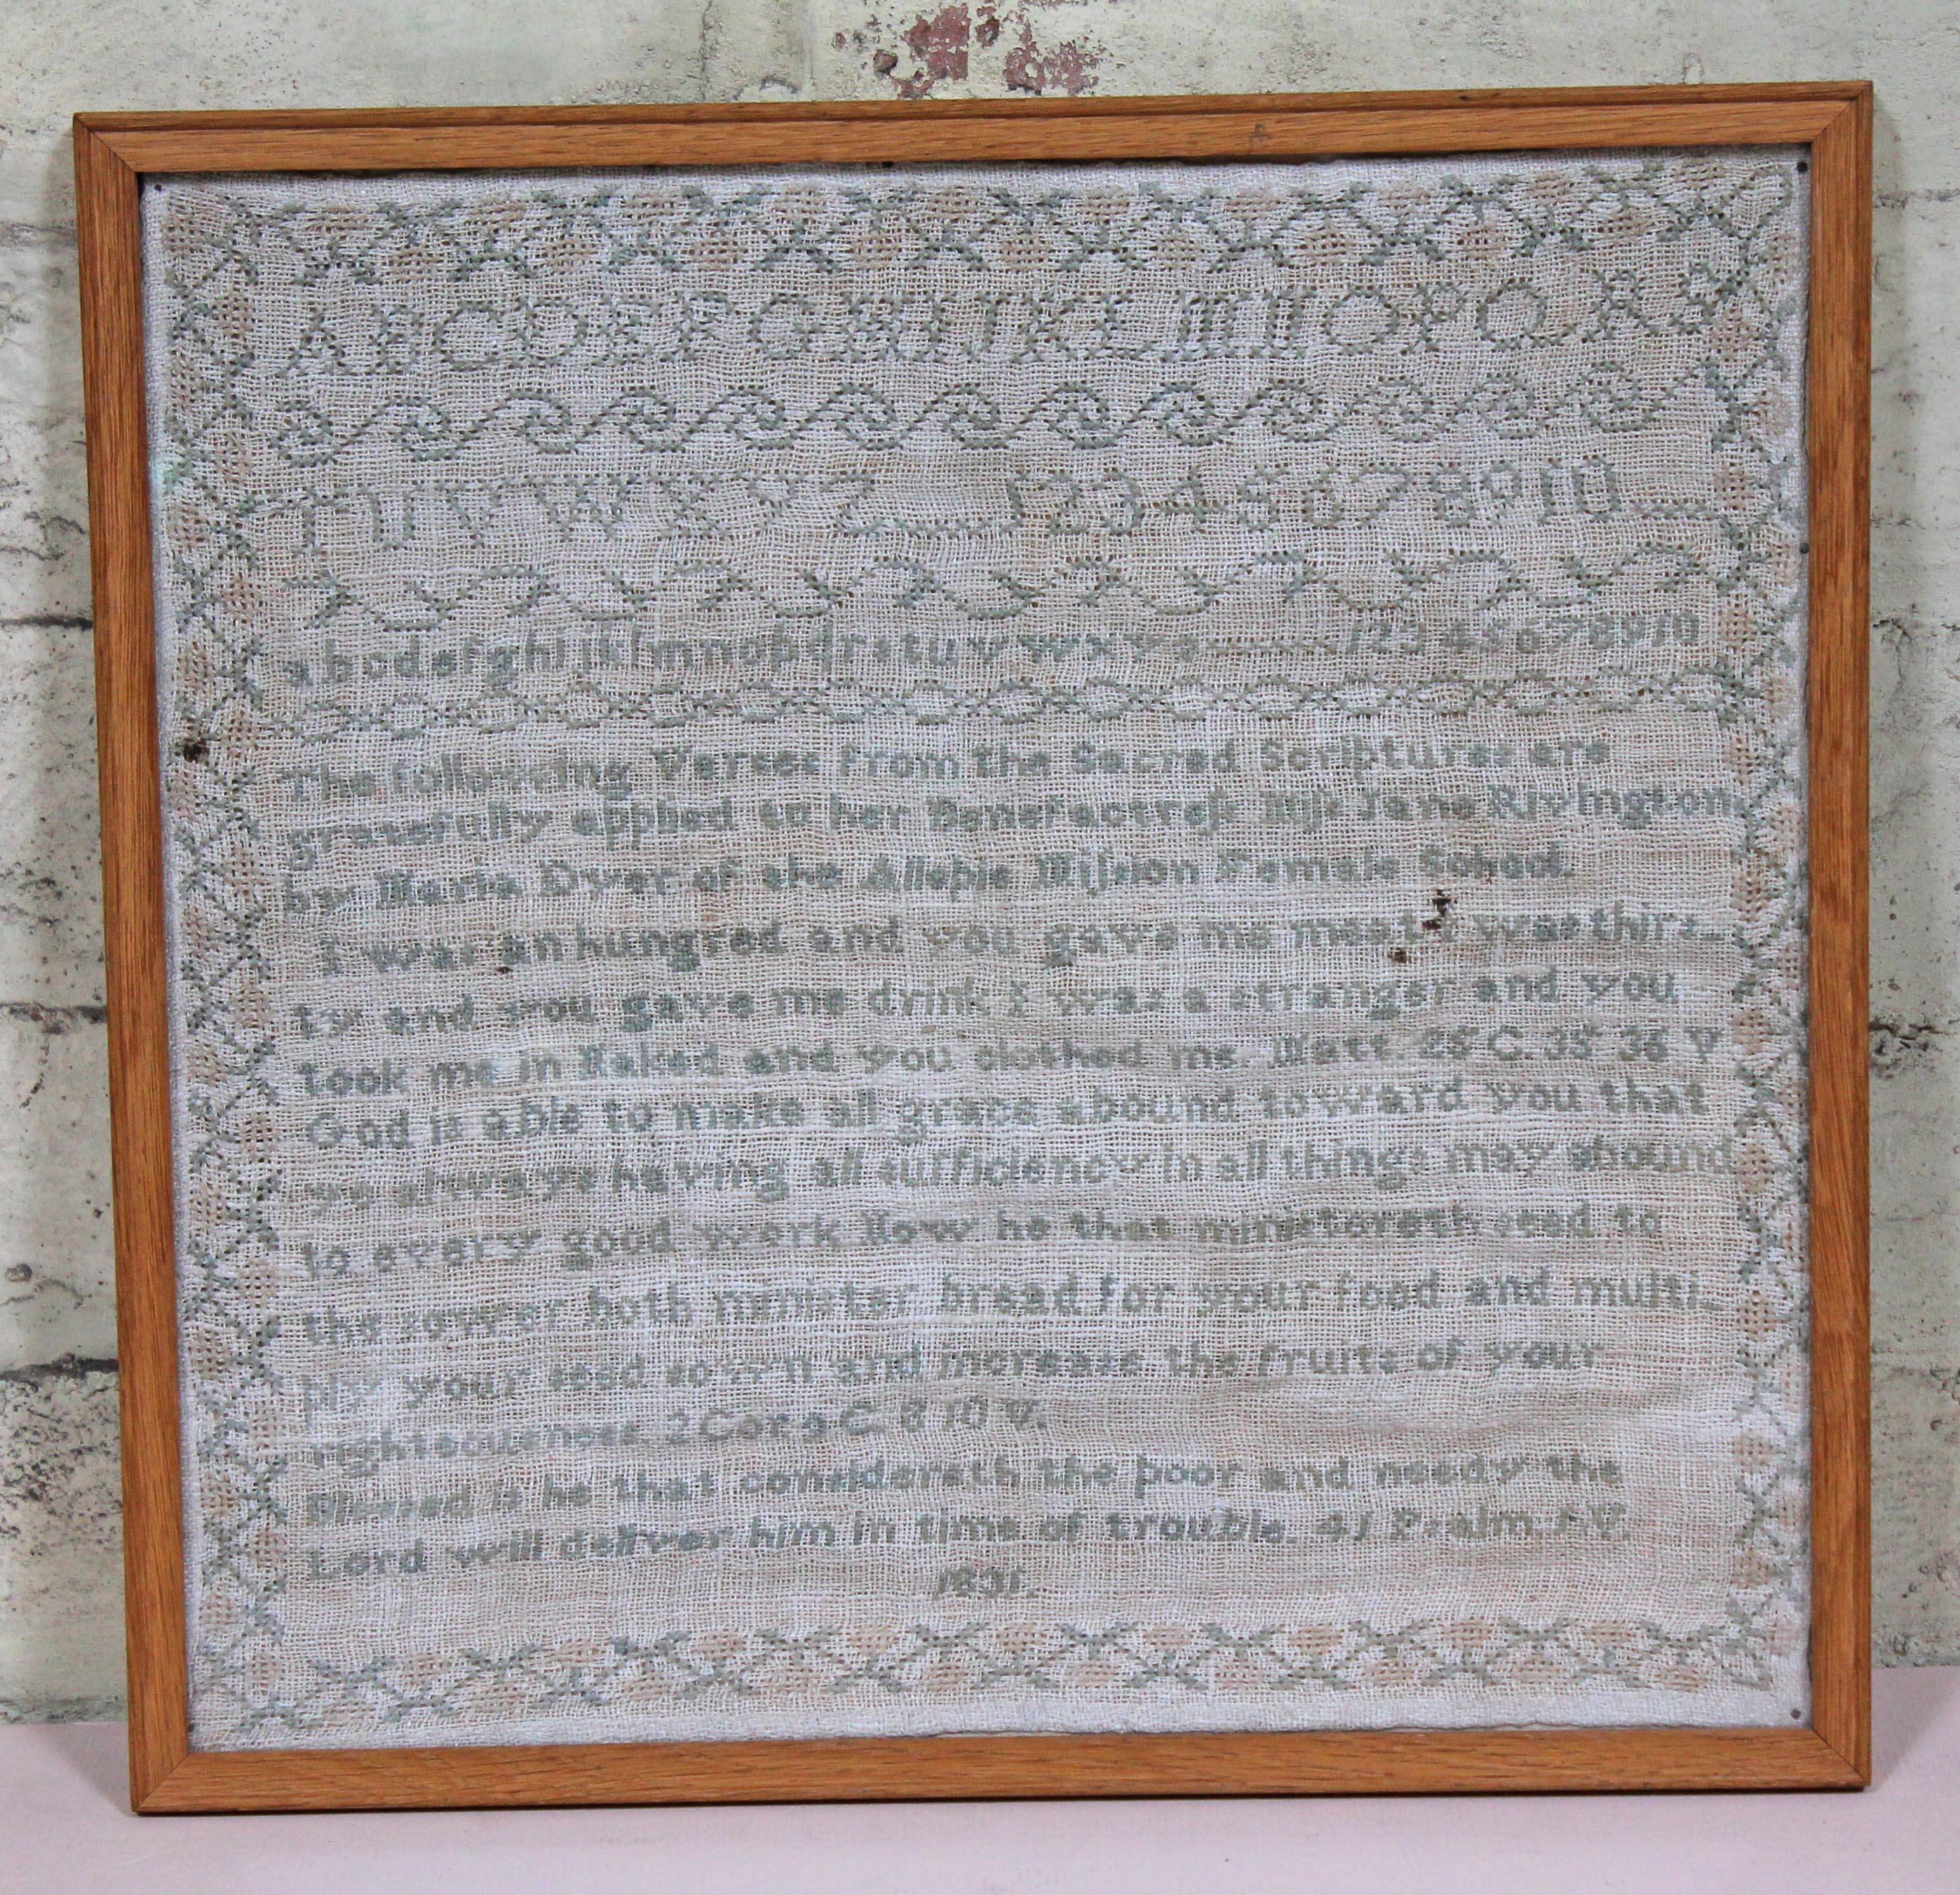 ABCDEFGHIJKLMNOPQR
TUVWXYZ 12345678910
abcdefghijklmnopqrstuvwxyz 12345678910
The following Verses from the Sacred Scriptures are
gratefully applied to her Benefactreſs Miſs Jane Rivington
by Maria Dyer of the Miſsion Female School.
I was an hungred and you gave me meat I was thirs-
ty and you gave me drink I was a stranger and you
took me in Naked and you clothed me Matt 25 C. 35 36 V
God is able to make all grace abound toward you that
ye always having all sufficiency in all things may abound
to every good work Now he that ministereth seed to
the sower both minister bread for your food and multi-
ply your seed sown and increase the fruits of your
righteousness 2 Cor 9 C. 8 10 V.
Blessed is he that considereth the poor and needy the
Lord will deliver him in time of trouble. 41 Psalm 1 V.
1831.